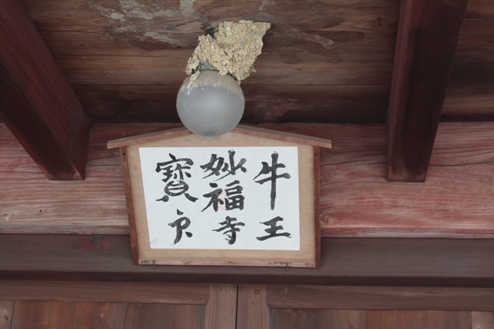 牛王
妙福寺
寶印